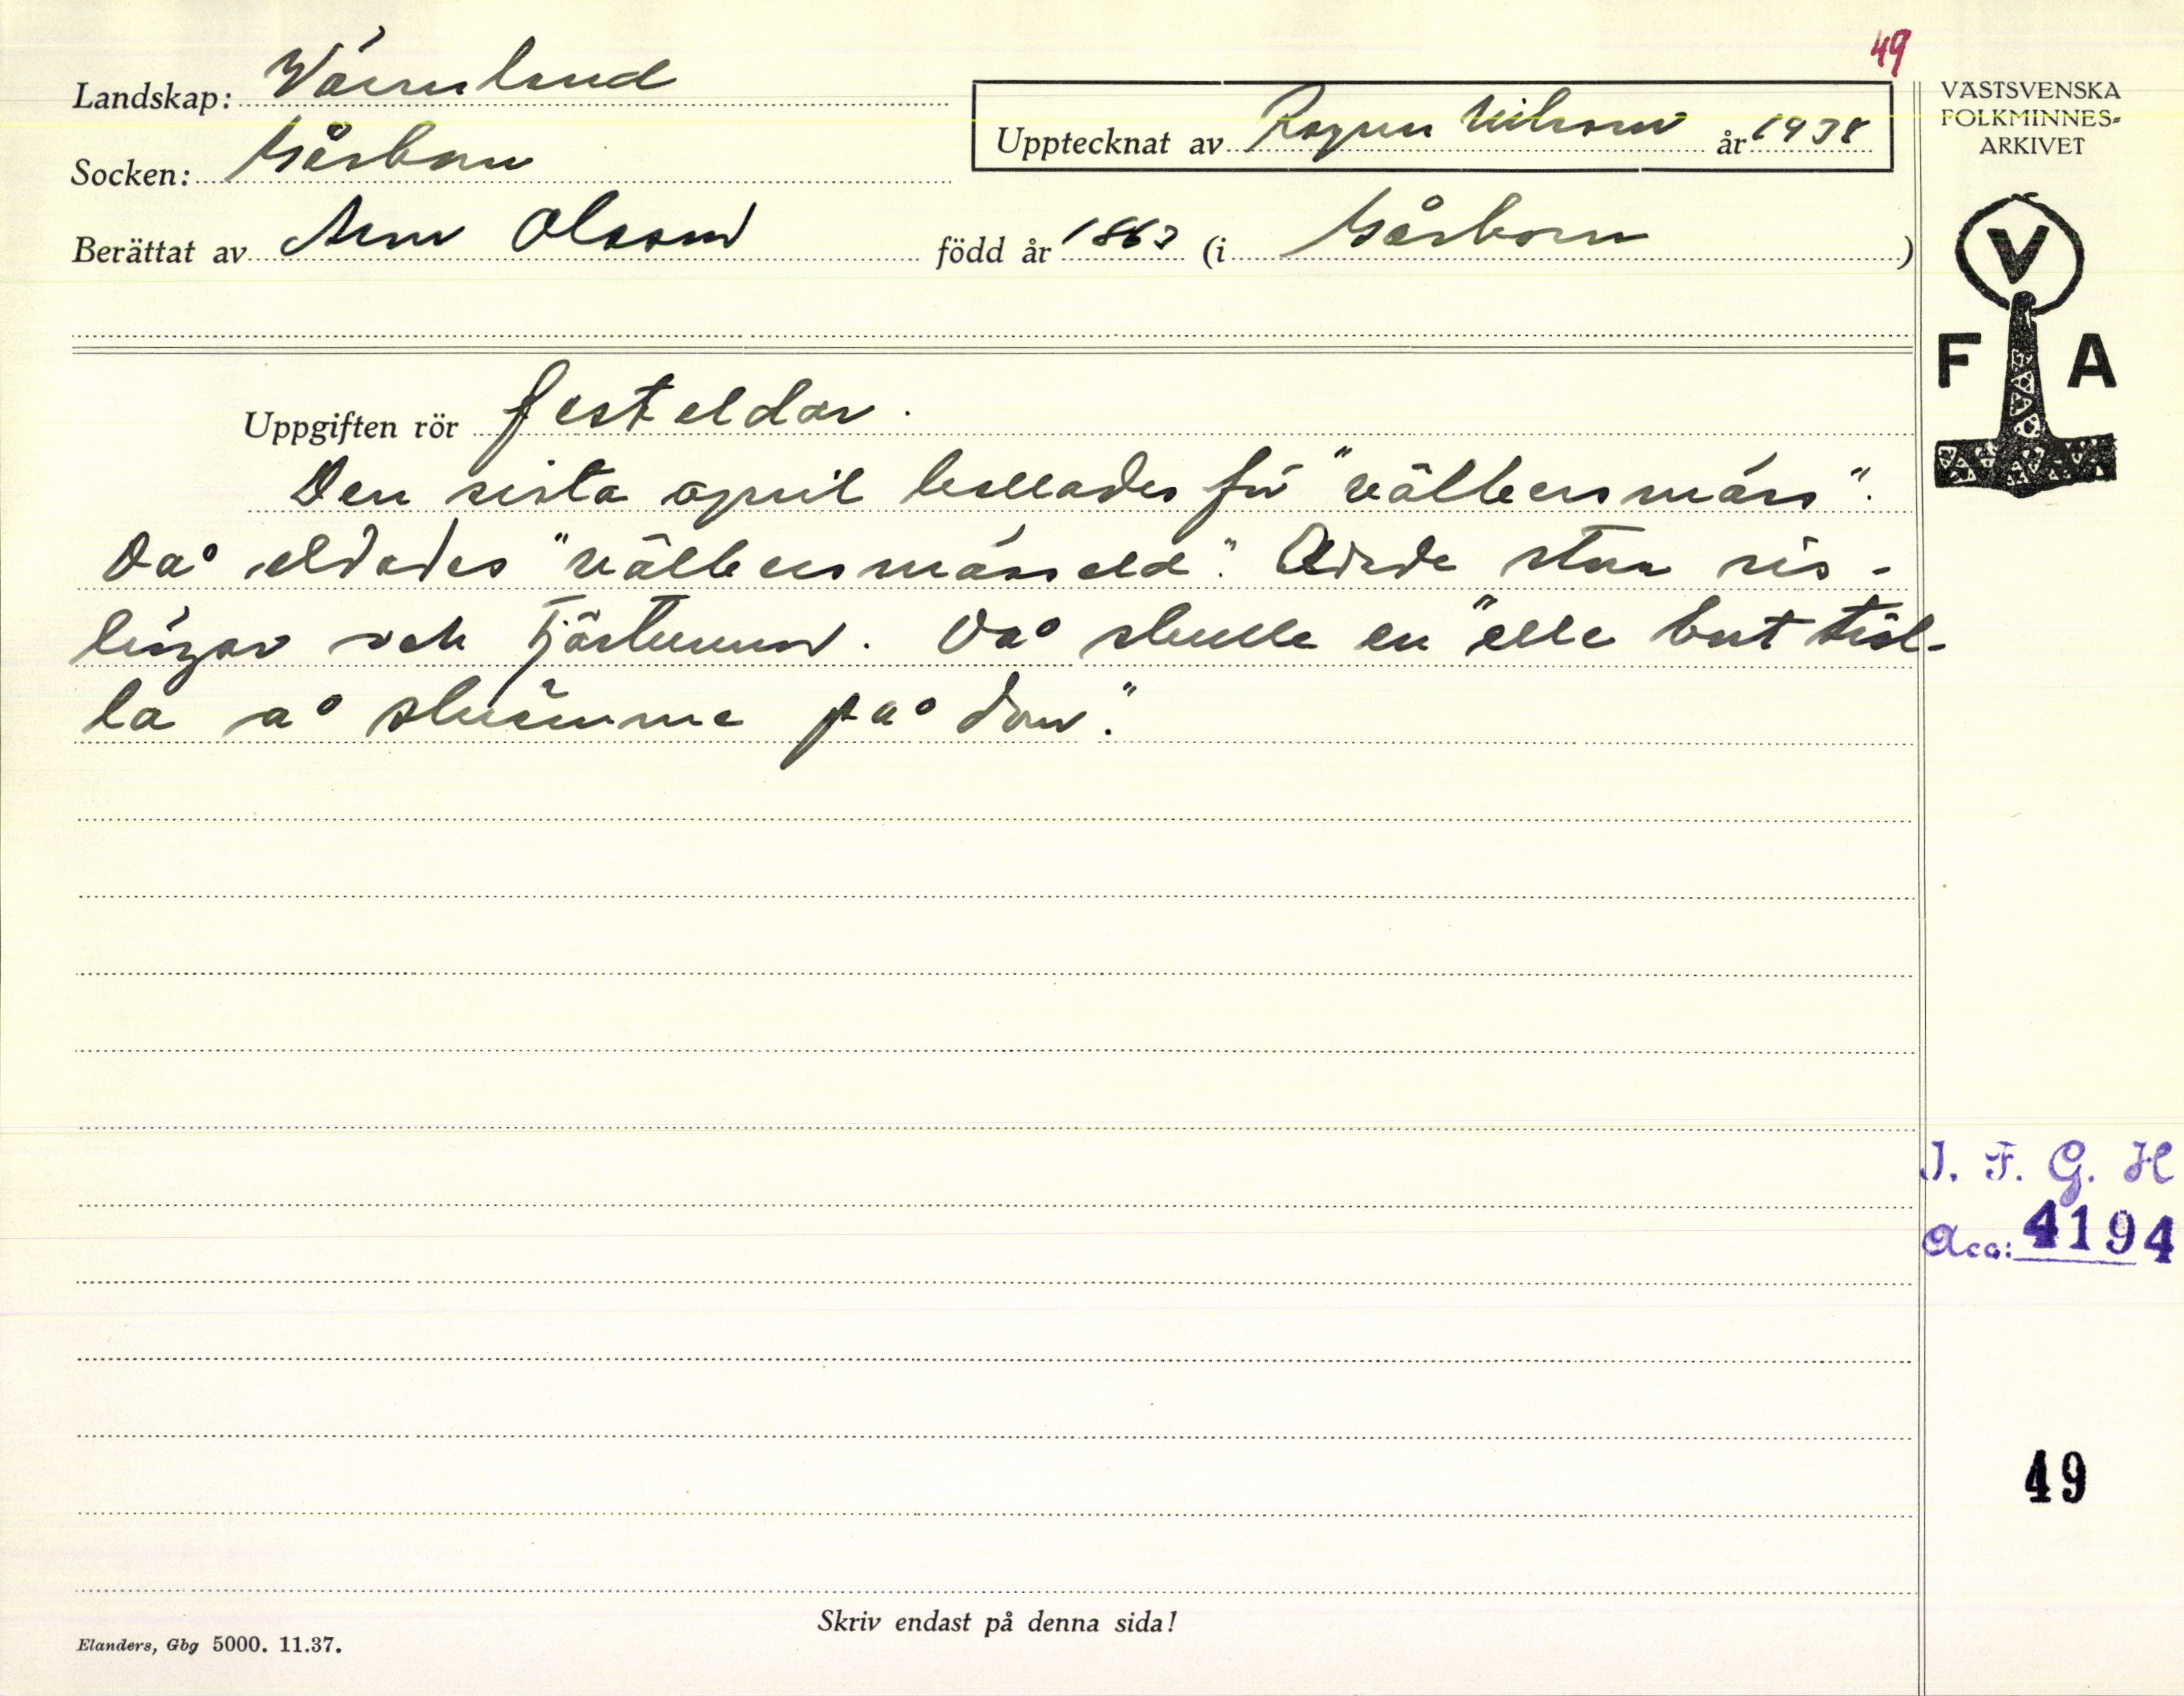 49
Landskap: Värmland
Socken: Gåsborn
Upptecknat av Ragnar Nilsson år 1938
Berättat av Olsson född år 1863 (i Gåsborn)
VÄSTSVENSKA
FOLKMINNES-
ARKIVET
V
F A
Uppgiften rör festeldar.
Den sista april kallades för "välbersmäss".
Då eldades "välbersmässeld". stora ris-
lingar och tjärtunnor. Då skulle en "elle bort tröl-
la å skrämme på dom."
I. F. G. H
Acc: 4194
49
Skriv endast på denna sida!
Elanders, Gbg 5000. 11.37.